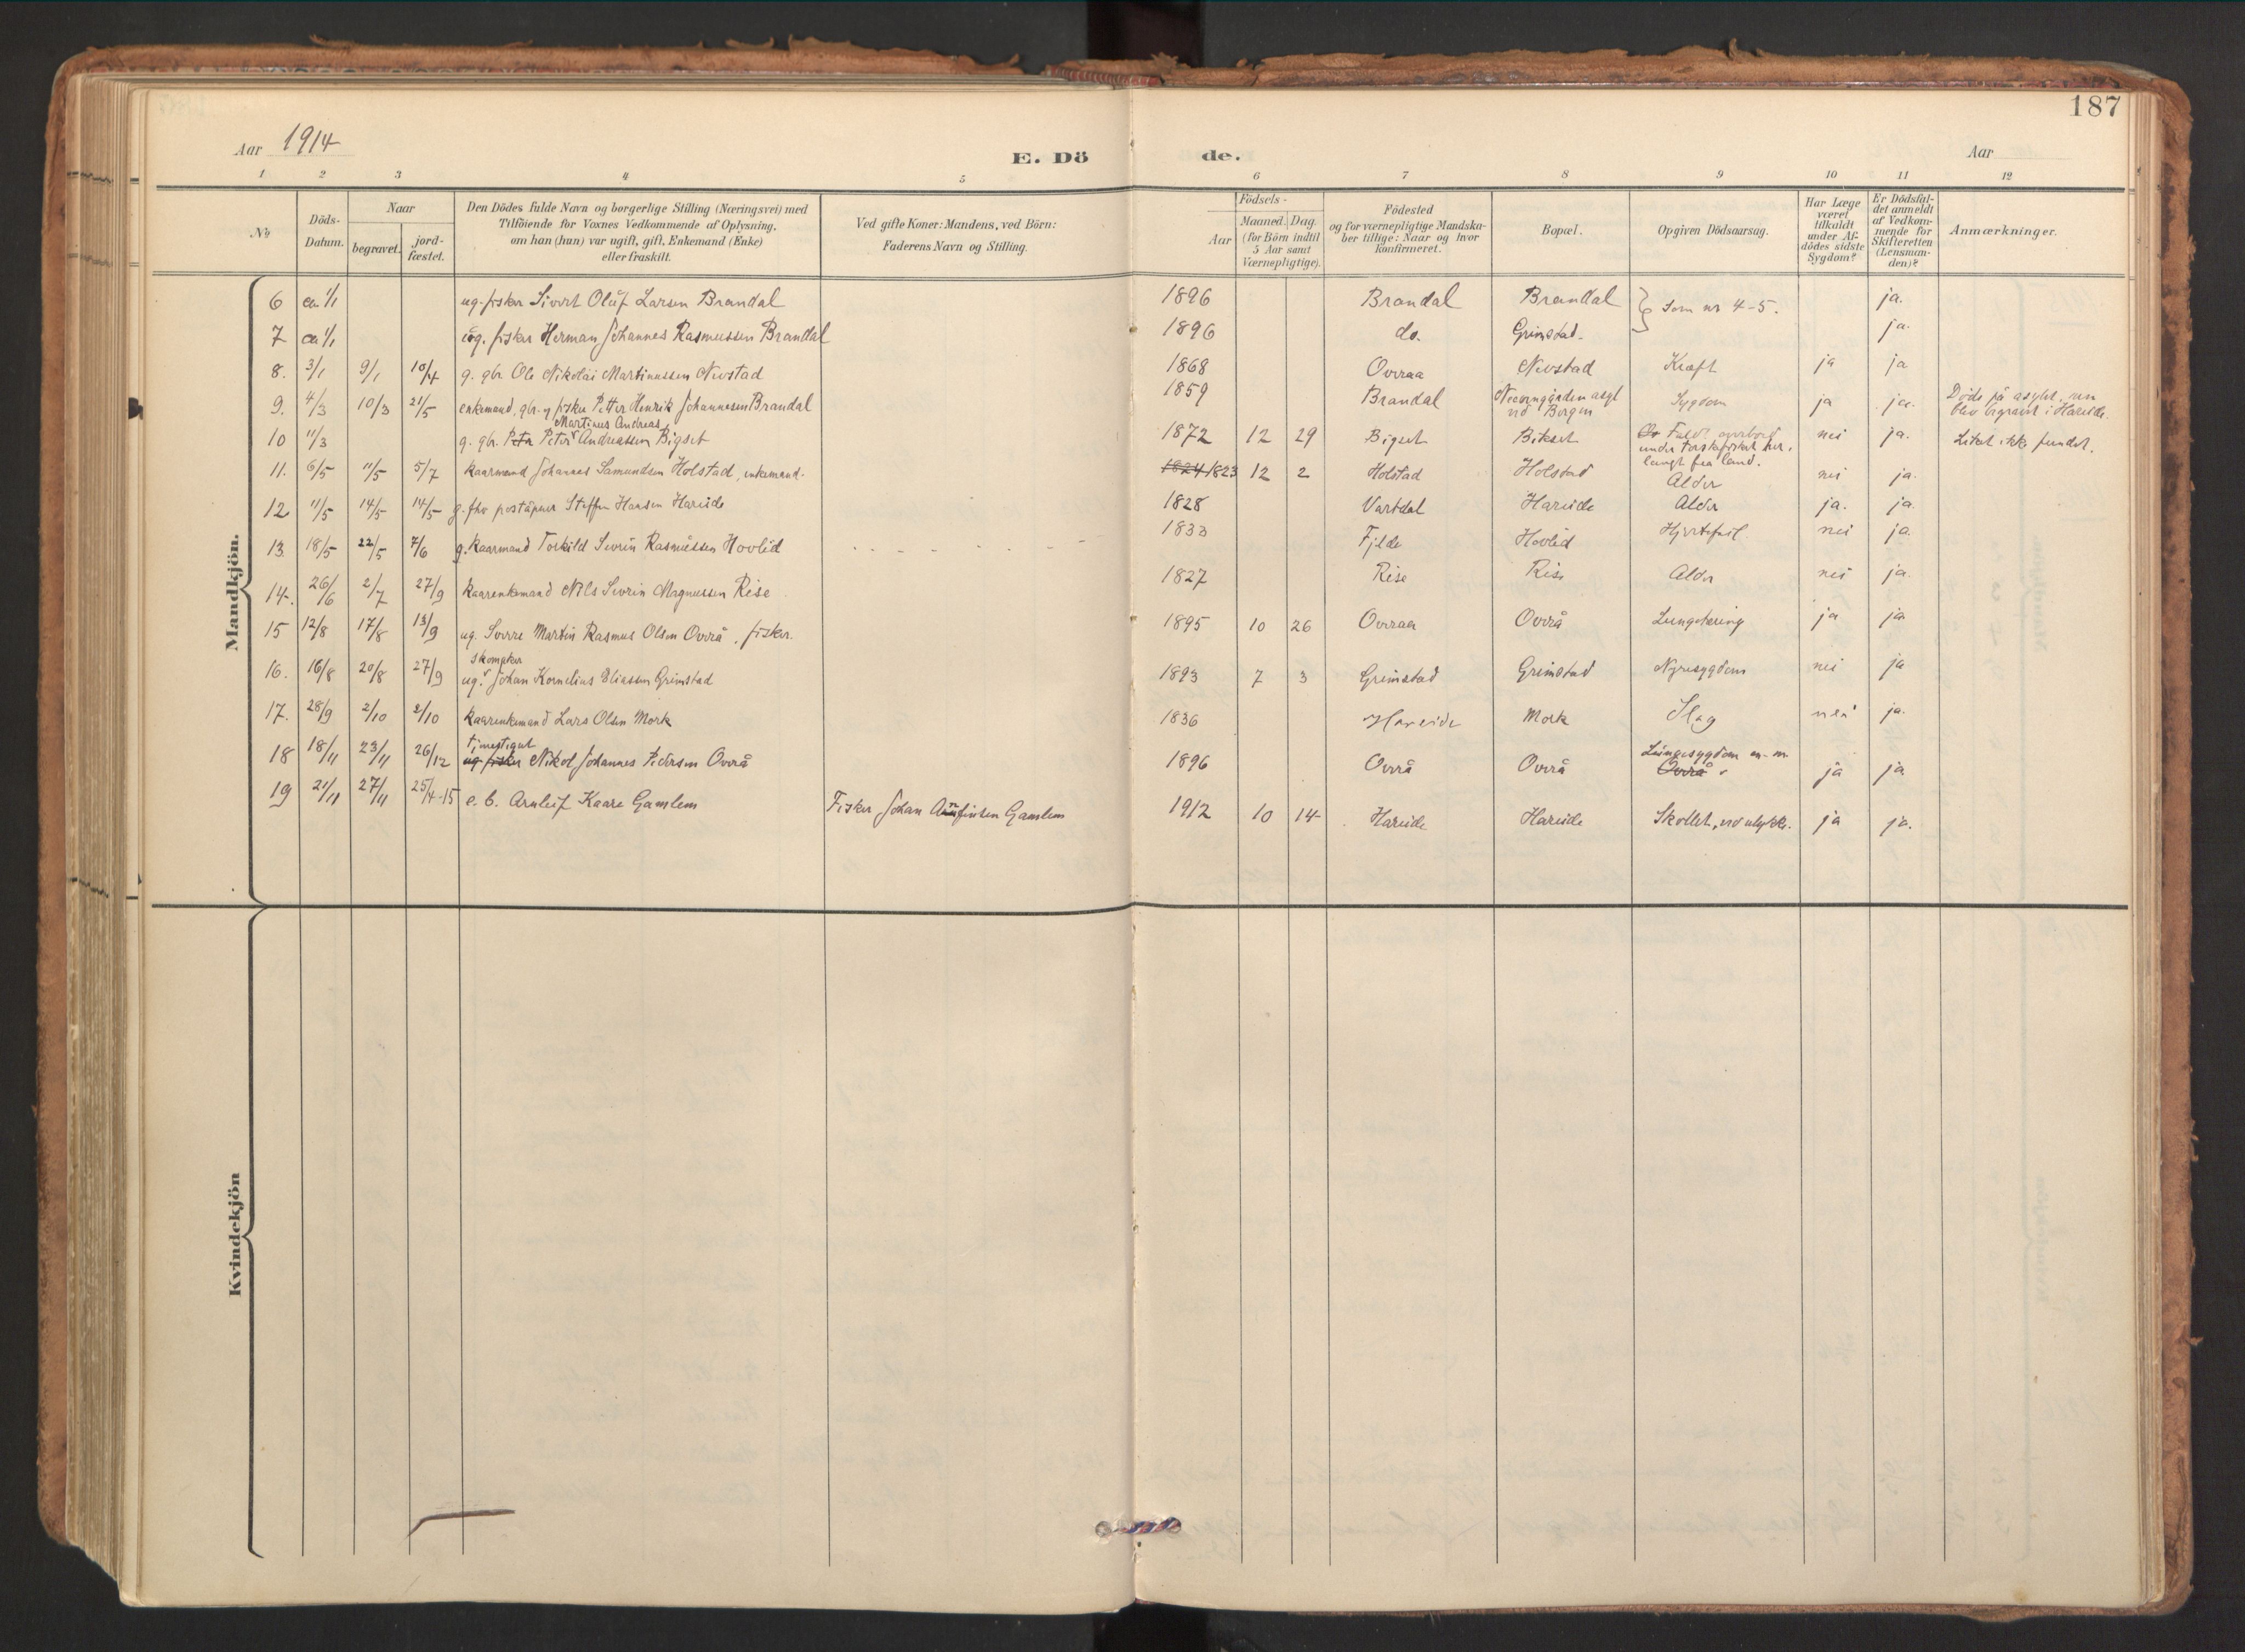 187
Aar 1914
E. Döde.
Aar
1 2 3 4 5 6 7 8 9 10 11 12
№
Döds-Datum.
Naar
begravet.
jord-fæstet.
Den Dödes fulde Navn og borgerlige Stilling (Næringsvei) med
Tilföiende for Voxnes Vedkommende af Oplysning,
om han (hun) var ugift, gift, Enkemand (Enke)
eller fraskilt.
Ved gifte Koner: Mandens, ved Börn:
Faderens Navn og Stilling.
Födsels-
Aar
Maaned. Dag
(for Börn indtil
5 Aar samt
Værnepligtige).
Födested
og for værnepligtige Mandska-
ber tillige: Naar og hvor
konfirmeret.
Bopæl.
Opgiven Dödsaarsag.
Har Læge
været
tilkaldt
under Af-
dödes sidste
Sygdom?
Er Dödsfal-
det anmeldt
af Vedkom-
mende for
Skifteretten
(Lensman-
den)?
Anmærkninger.
Mandkjön.
6 ca. 1/1 ug. fisker Sivert Oluf Larsen Brandal 1896 Brandal Brandal } Som nr 4-5. ja.
7 ca 1/1 ug. fisker Herman Johannes Rasmussen Brandal 1896 do. Grimstad. ja.
8. 3/1 9/1 10/4 g. gbr. Ole Nikolai Martinussen Nevstad 1868 Overaa Nevstad Kræft ja ja
9. 4/3 10/3 21/5 enkemand, gbr. og fisker Petter Henrik Johannesen Brandal 1859 Brandal Neevengården asyl ved Bergen Sygdom ja ja. Döde på asylet, men blev begravet i Hareide.
10 11/3 g. gbr. Peter Martinus Andreas Andreassen Bigset 1872 12 29 Bigset Bikset Faldt overbord under torskefisket her, langt fra land. nei ja. Liket ikke fundet.
11. 6/5 11/5 5/7 kaarmand Johannes Samundsen Holstad, enkemand. 1824 1823 12 2 Holstad Holstad Alder nei ja.
12 11/5 14/5 14/5 g. fhv poståpner Steffen Hansen Hareide 1828 Vartdal Hareide Alder ja. ja.
13. 18/5 22/5 7/6 g. kaarmand Torkild Severin Rasmussen Hovlid 1833 Fjelde Hovlid Hjertefeil nei ja.
14. 26/6 2/7 27/9 kaarenkemand Nils Severin Magnussen Rise 1827 Rise Rise Alder nei ja.
15 12/8 17/8 13/9 ug. Sverre Martin Rasmus Olsen Overå, fisker. 1895 10 26 Overaa Overå Lungetæring ja ja
16. 16/8 20/8 27/9 ug. skomaker Johan Kornelius Eliassen Grimstad 1893 7 3 Grimstad Grimstad Nyresygdom nei ja
17. 28/9 2/10 2/10 kaarenkemand Lars Olsen Mork 1836 Hareide Mork Slag nei ja.
18 18/11 23/11 26/12 ug fisker tjenestegut Nikol Johannes Pedersen Overå 1896 Overå Overå Lungesygdom m. m. Overå ja ja
19 21/11 27/11 25/4-15 e. b. Arnleif Kaare Gamlem Fisker Johan Arnfinsen Gamlem 1912 10 14 Hareide Hareide Skoldet, ved ulykke. ja ja.
Kvindekjön